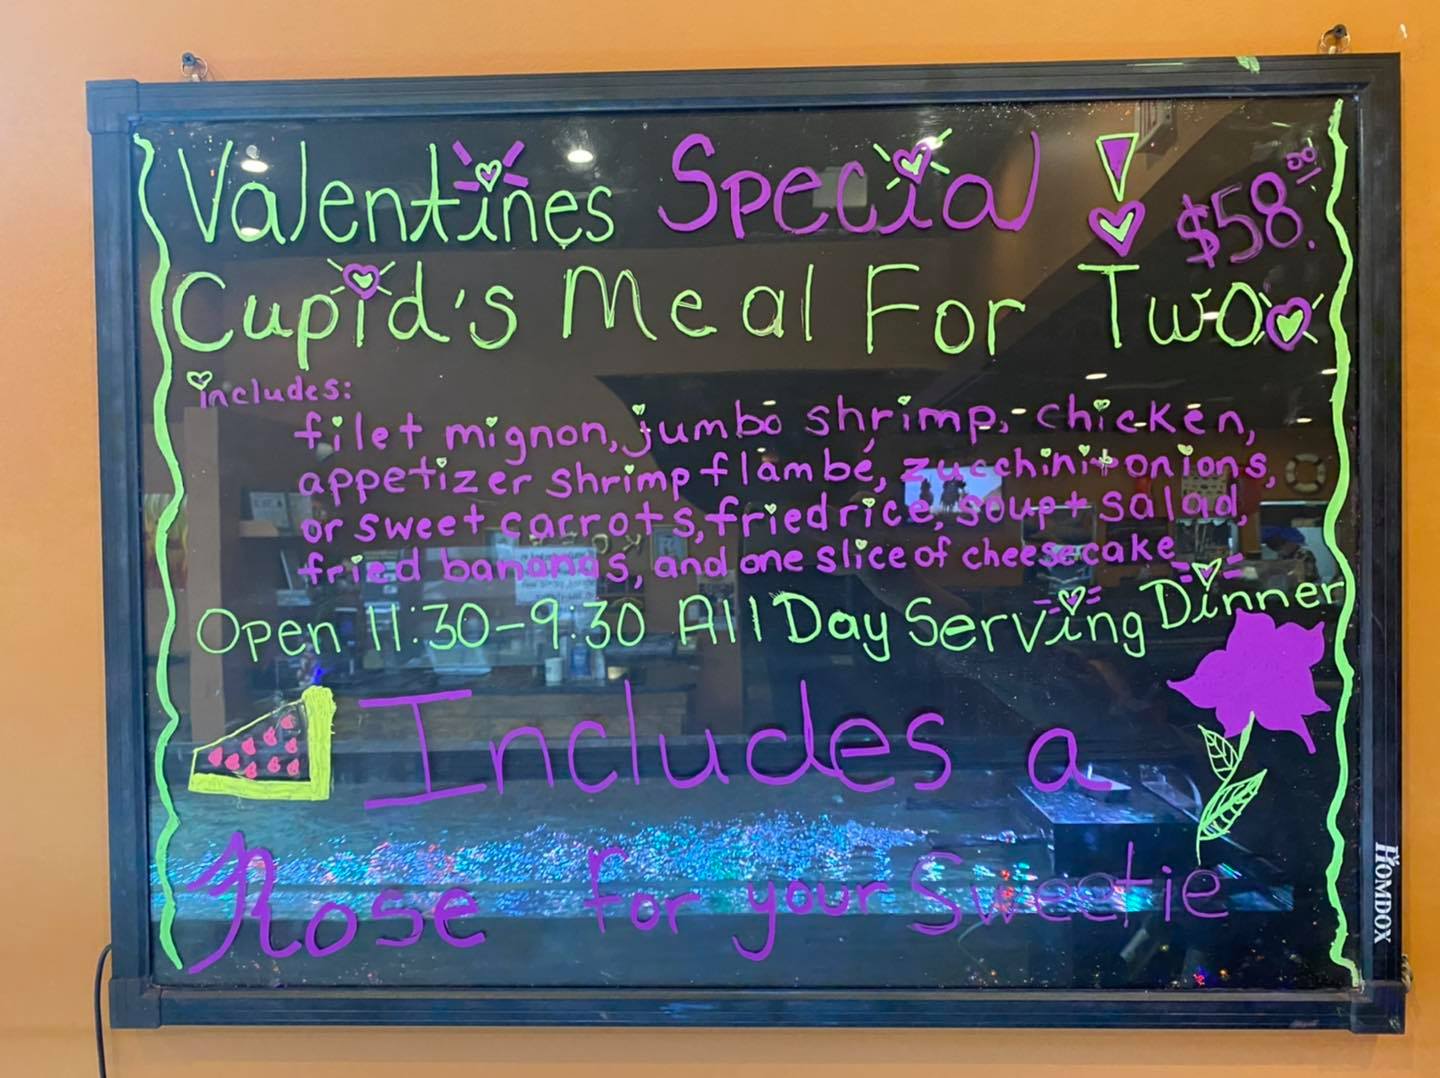 Valentines Special ! $58.00
Cupid's Meal For Two
includes:
filet mignon, jumbo shrimp, chicken,
appetizer shrimp flambé, zucchini + onions,
or sweet carrots, fried rice, soup + salad,
fried bananas, and one slice of cheesecake
Open 11:30-9:30 All Day Serving Dinner
Includes a
Rose for your Sweetie
HOMDOX